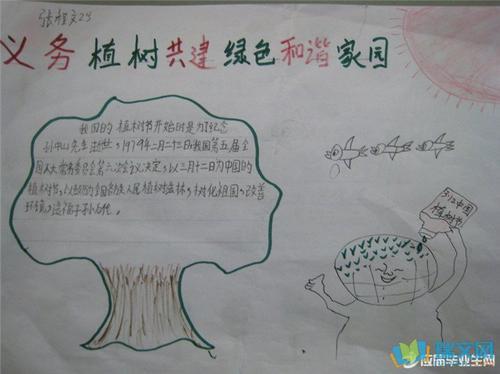 张程文25
义务植树共建绿色和谐家园
我国的植树节开始时是为了纪念
孙中山先生逝世。1979年二月二十三日我国第五届全
国人大常务委员会第六次会议决定。以三月十二日为中国的
植树节。以鼓励全国各族人民植树造林。绿化祖国。改善
环境。造福子孙后代。
3.12中国
植树节
应届毕业生网